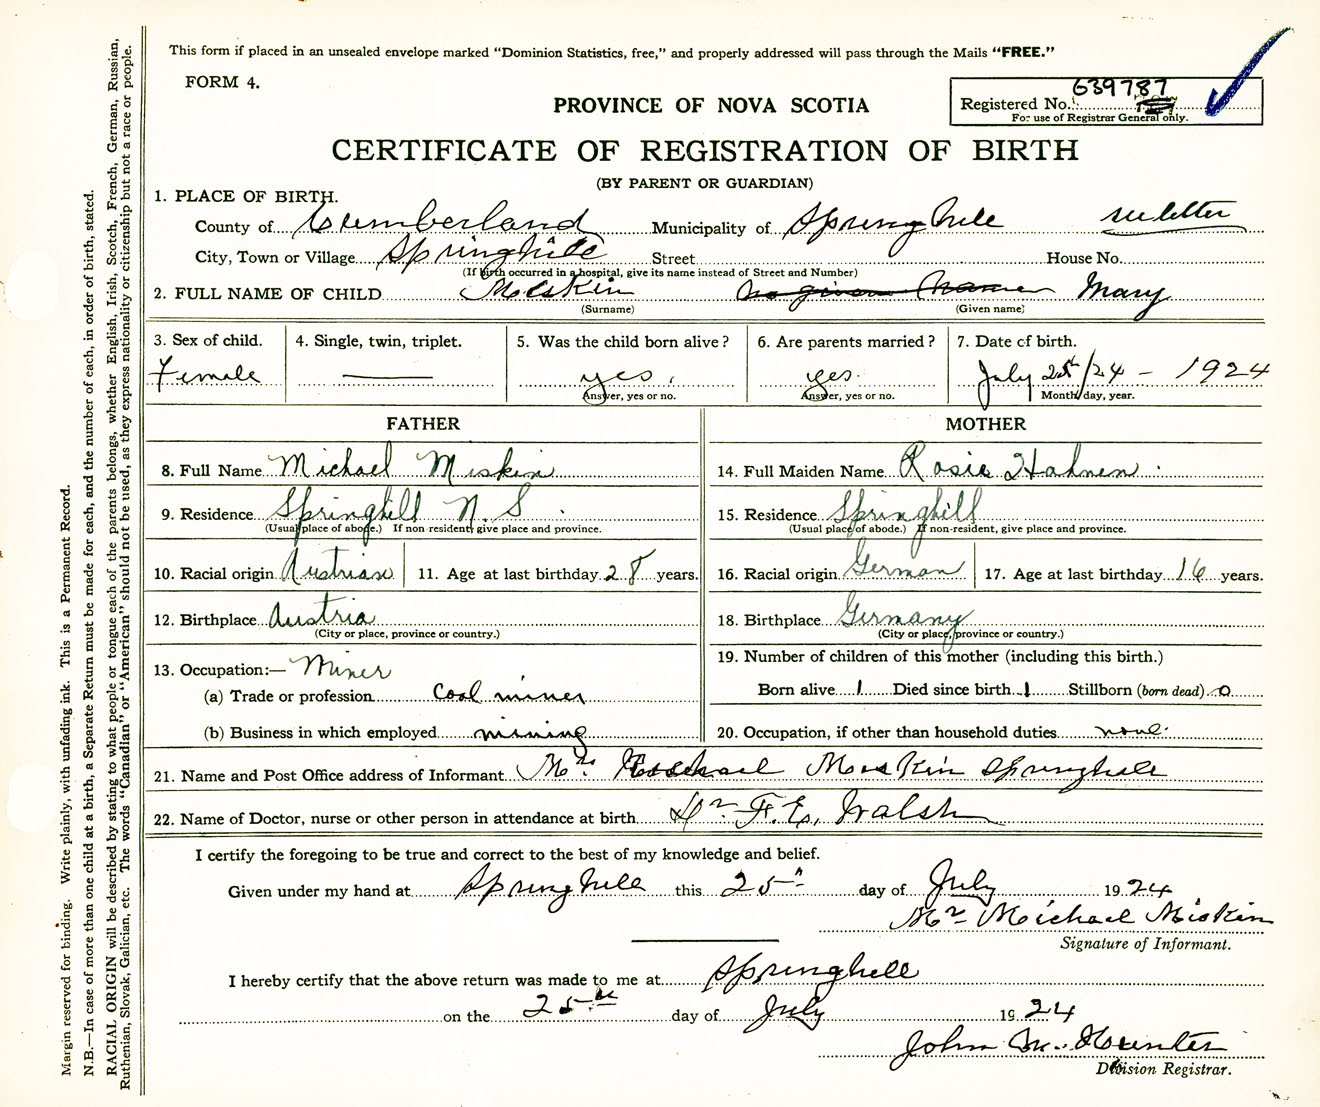 This form if placed in an unsealed envelope marked “Dominion Statistics, free,” and properly addressed will pass through the Mails “FREE.”
FORM 4.
639787
PROVINCE OF NOVA SCOTIA
Registered No.
For use of Registrar General only.
CERTIFICATE OF REGISTRATION OF BIRTH
(BY PARENT OR GUARDIAN)
1. PLACE OF BIRTH.
County of Cumberland Municipality of Springhill see letter
City, Town or Village Springhill Street House No.
(If birth occurred in a hospital, give its name instead of Street and Number)
2. FULL NAME OF CHILD Miskin no given name Mary
(Surname) (Given name)
3. Sex of child. 4. Single, twin, triplet. 5. Was the child born alive? 6. Are parents married? 7. Date of birth.
Female yes. yes. July 25th/24 - 1924
Answer, yes or no. Answer, yes or no. Month, day, year.
FATHER MOTHER
8. Full Name Michael Miskin 14. Full Maiden Name Rosie Hahnen
9. Residence Springhill N. S. 15. Residence Springhill
(Usual place of abode.) If non-resident, give place and province. (Usual place of abode.) If non-resident, give place and province.
10. Racial origin Austrian 11. Age at last birthday 28 years. 16. Racial origin German 17. Age at last birthday 16 years.
12. Birthplace Austria 18. Birthplace Germany
(City or place, province or country.) (City or place, province or country.)
13. Occupation:— Miner 19. Number of children of this mother (including this birth.)
(a) Trade or profession coal miner Born alive 1 Died since birth 1 Stillborn (born dead) 0
(b) Business in which employed mining 20. Occupation, if other than household duties none.
21. Name and Post Office address of Informant Michael Miskin Springhill
22. Name of Doctor, nurse or other person in attendance at birth Dr. F. E. Walsh
I certify the foregoing to be true and correct to the best of my knowledge and belief.
Given under my hand at Springhill this 25th day of July 1924
Mr Michael Miskin
Signature of Informant.
I hereby certify that the above return was made to me at Springhill
on the 25th day of July 1924
John M. Hunter
Division Registrar.
Margin reserved for binding. Write plainly, with unfading ink. This is a Permanent Record.
N.B.—In case of more than one child at a birth, a Separate Return must be made for each, and the number of each, in order of birth, stated.
RACIAL ORIGIN will be described by stating to what people or tongue each of the parents belongs, whether English, Irish, Scotch, French, German, Russian,
Ruthenian, Slovak, Galician, etc. The words “Canadian” or “American” should not be used, as they express nationality or citizenship but not a race or people.